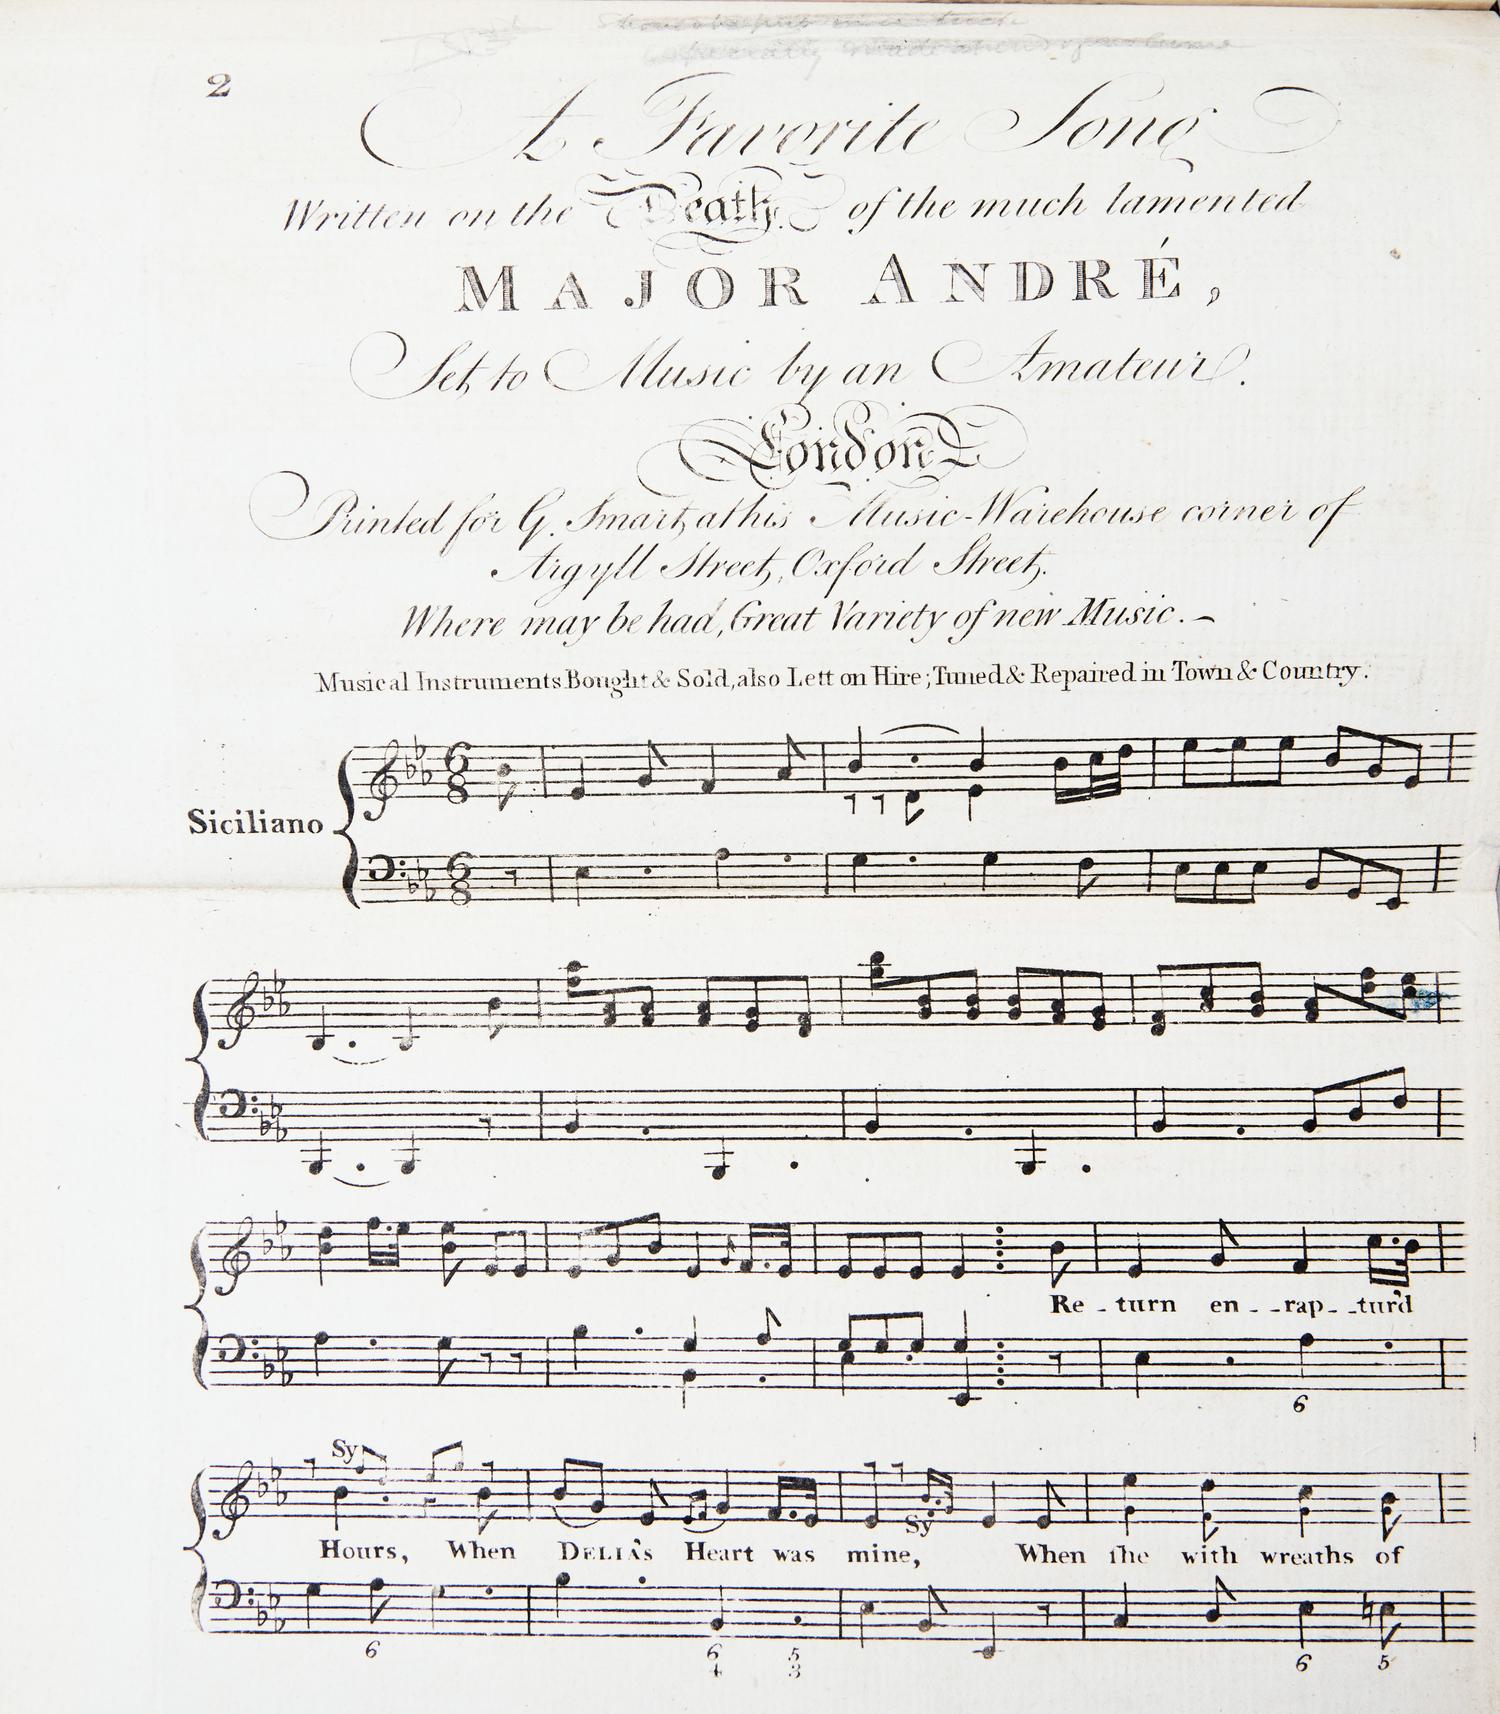 2
A Favorite Song
Written on the Death of the much lamented
MAJOR ANDRÉ,
Set to Music by an Amateur.
London
Printed for G. Smart, at his Music-Warehouse corner of
Argyll Street, Oxford Street.
Where may be had, Great Variety of new Music.—
Musical Instruments Bought & Sold, also Lett on Hire; Tuned & Repaired in Town & Country.
Siciliano
6 8
6 8
Re - turn en - - rap - - tur'd
6
Sy
Sy
Hours, When DELIA's Heart was mine, When she with wreaths of
6 6 4 5 3 6 5